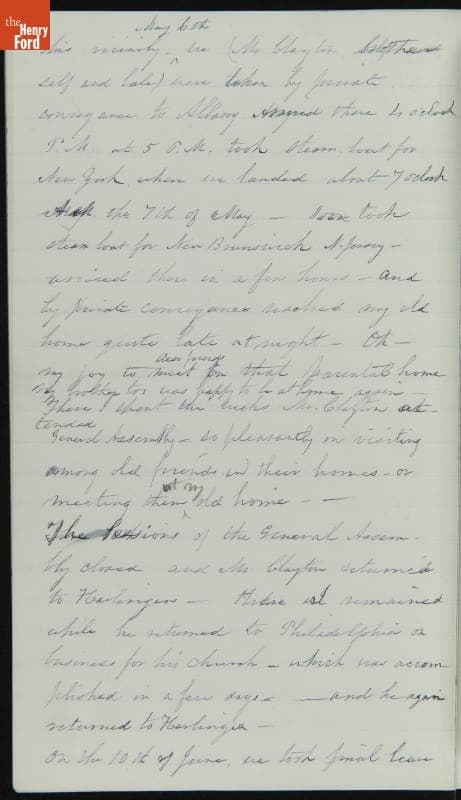 the
Henry
Ford
May 6th
this vicinity - we (Mr Clayton
self and babe) were taken by private
conveyance to Albany Arrived there 4 o'clock
P.M. at 5 P.M. took steam boat for
New York, where we landed about 7 oclock
the 7th of May - Soon took
steam boat for New Brunswick N. Jersey -
arrived there in a few hours - and
by private conveyance reached my old
home quite late at night - Oh -
dear friends
my joy to meet in that parental home
My brother too was happy to be at home again -
There I spent the weeks Mr. Clayton at-
tended
General Assembly - so pleasantly in visiting
among old friends in their homes - or
at my
meeting them ^ old home - -
The Sessions of the General Assem-
bly closed and Mr Clayton returned
to Harlingen - there I remained
while he returned to Philadelphia on
business for his church - which was accom
plished in a few days - - and he again
returned to Harlingen -
On the 10th of June, we took final leave